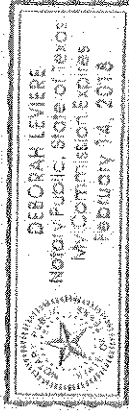 DEBORAH LEVIERE
Notary Public, State of Texas
My Commission Expires
February 14, 2018